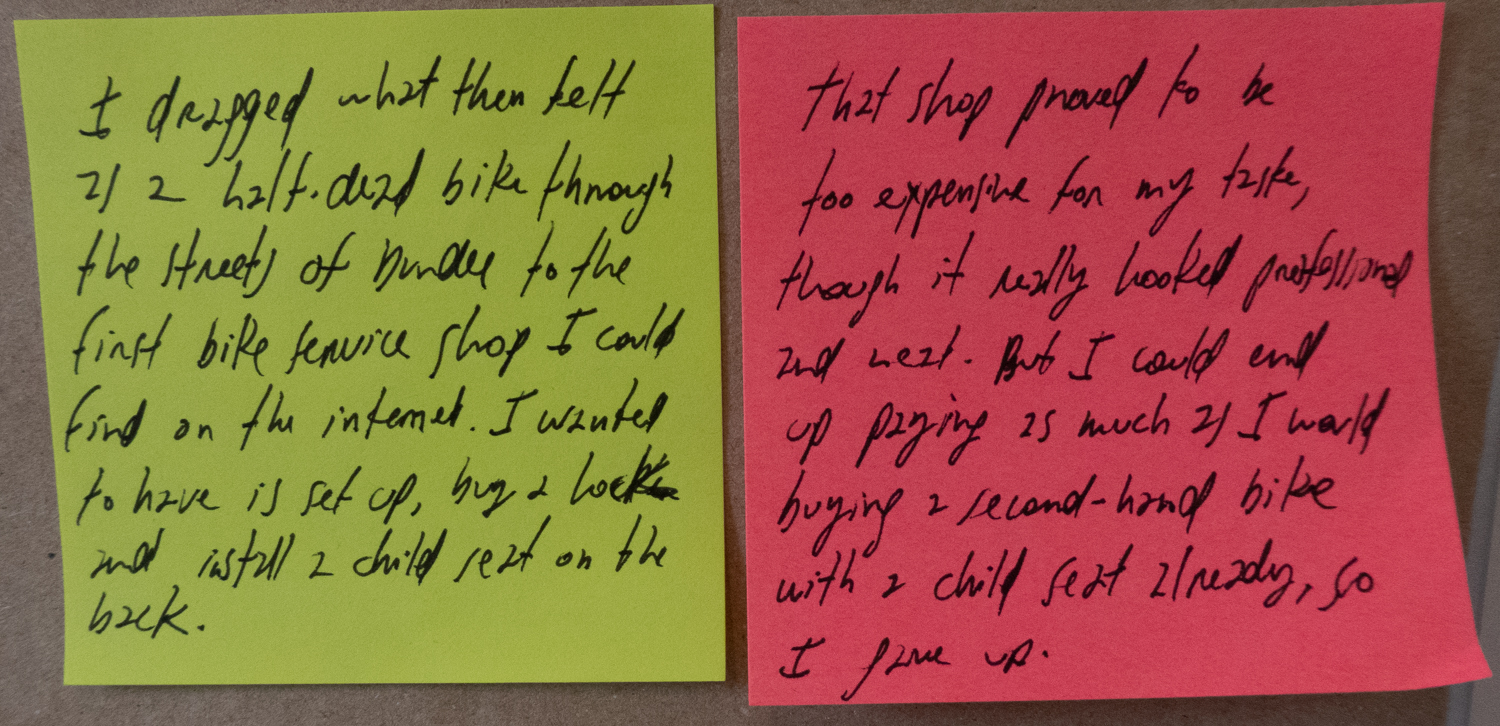 I dragged what then felt
as a half-dead bike through
the streets of Dundee to the
first bike service shop I could
find on the internet. I wanted
to have is set up, buy a lock
and install a child seat on the
back.
That shop proved to be
too expensive for my taste,
though it really looked professional
and neat. But I could end
up paying as much as I would
buying a second-hand bike
with a child seat already, so
I gave up.